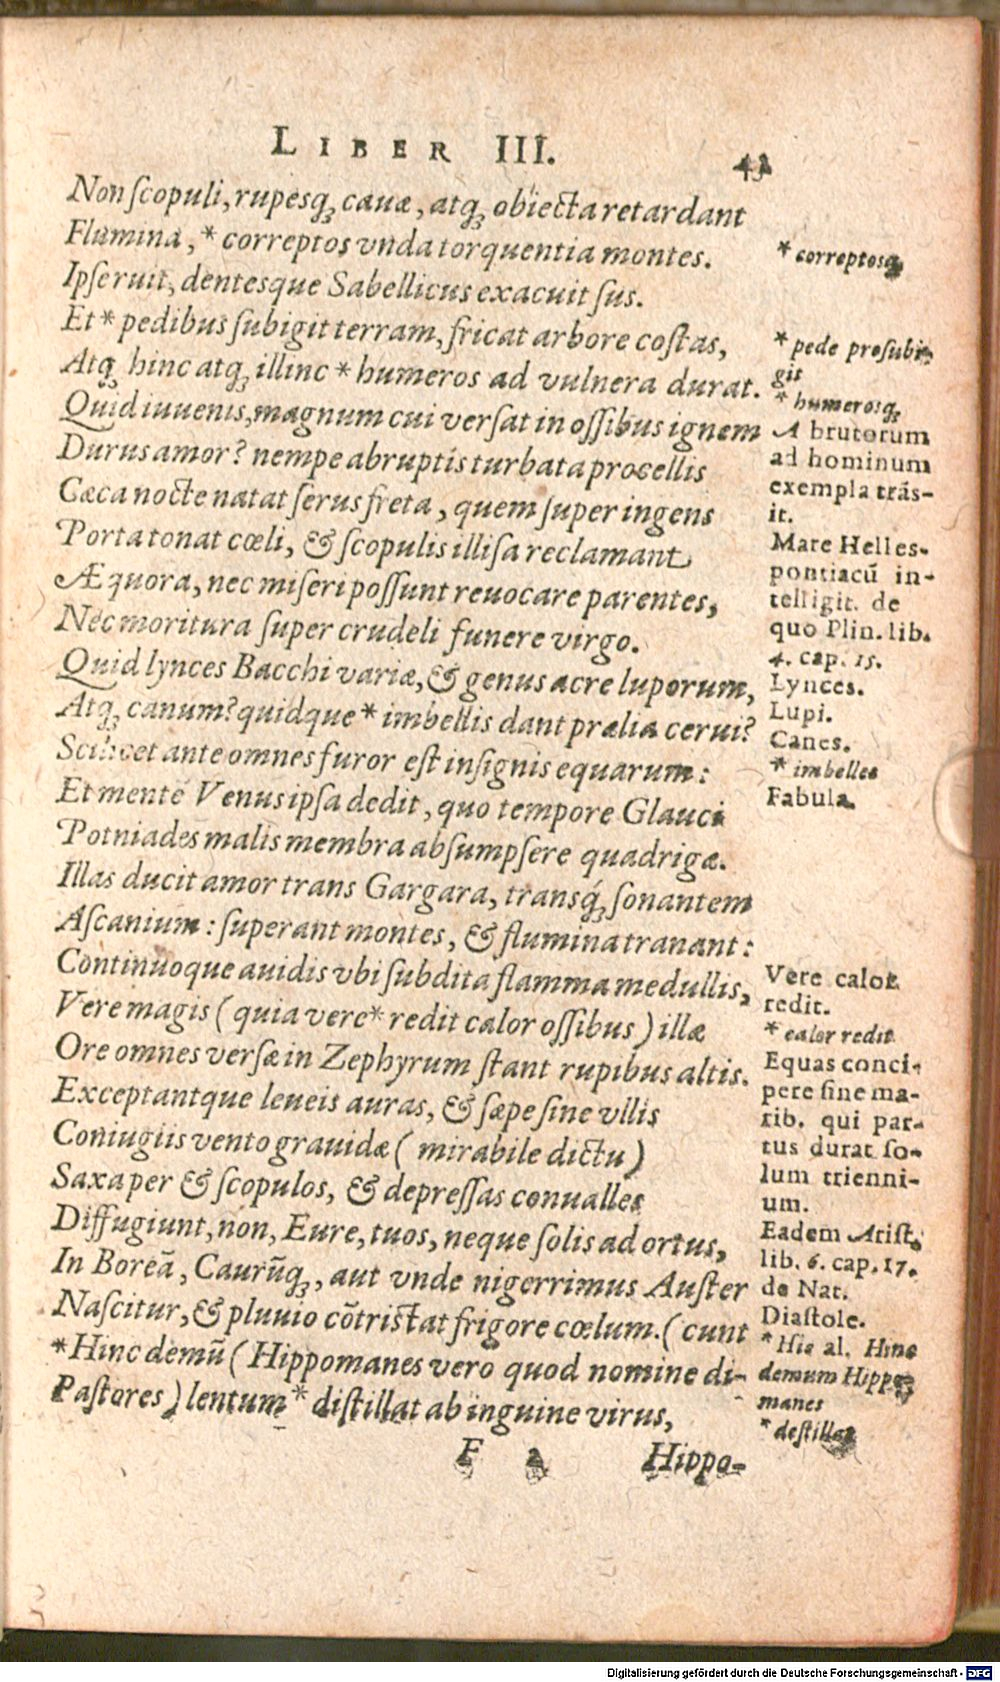 LIBER III. 43
Non ſcopuli, rupesq́; cauæ, atq́; obiecta retardant
Flumina, * correptos vnda torquentia montes.
Ipſe ruit, dentesque Sabellicus exacuit ſus.
Et * pedibus ſubigit terram, fricat arbore coſtas,
Atq́; hinc atq́; illinc * humeros ad vulnera durat.
Quid iuuenis, magnum cui verſat in oſſibus ignem
Durus amor? nempe abruptis turbata procellis
Cæca nocte natat ſerus freta, quem ſuper ingens
Porta tonat cœli, & ſcopulis illiſa reclamant
Æquora, nec miſeri poſſunt reuocare parentes,
Nec moritura ſuper crudeli funere virgo.
Quid lynces Bacchi variæ, & genus acre luporum,
Atq́; canum? quidque * imbellis dant prælia cerui?
Scilicet ante omnes furor eſt inſignis equarum:
Et mentē Venus ipſa dedit, quo tempore Glauci
Potniades malis membra abſumpſere quadrigæ.
Illas ducit amor trans Gargara, transq́; ſonantem
Aſcanium: ſuperant montes, & flumina tranant:
Continuoque auidis vbi ſubdita flamma medullis,
Vere magis (quia vere * redit calor oſſibus) illæ
Ore omnes verſæ in Zephyrum ſtant rupibus altis.
Exceptantque leueis auras, & ſæpe ſine vllis
Coniugiis vento grauidæ (mirabile dictu)
Saxa per & ſcopulos, & depreſſas conualles
Diffugiunt, non, Eure, tuos, neque ſolis ad ortus,
In Boreā, Caurūq́;, aut vnde nigerrimus Auſter
Naſcitur, & pluuio cōtriſtat frigore cœlum. (cunt
*Hinc demū (Hippomanes vero quod nomine di-
Paſtores) lentum * diſtillat ab inguine virus,
F 2 Hippo-
* correptosq́;
* pede proſubi-
git
* humerosq́;
A brutorum
ad hominum
exempla trāſ-
it.
Mare Helleſ-
pontiacū in-
telligit. de
quo Plin. lib.
4. cap. 15.
Lynces.
Lupi.
Canes.
* imbelles
Fabula.
Vere calor
redit.
* calor redit
Equas conci-
pere ſine ma-
rib. qui par-
tus durat ſo-
lum trienni-
um.
Eadem Ariſt.
lib. 6. cap. 17.
de Nat.
Diaſtole.
* Hic al. Hinc
demum Hippo-
manes
* deſtillat
Digitalisierung gefördert durch die Deutsche Forschungsgemeinschaft - DFG